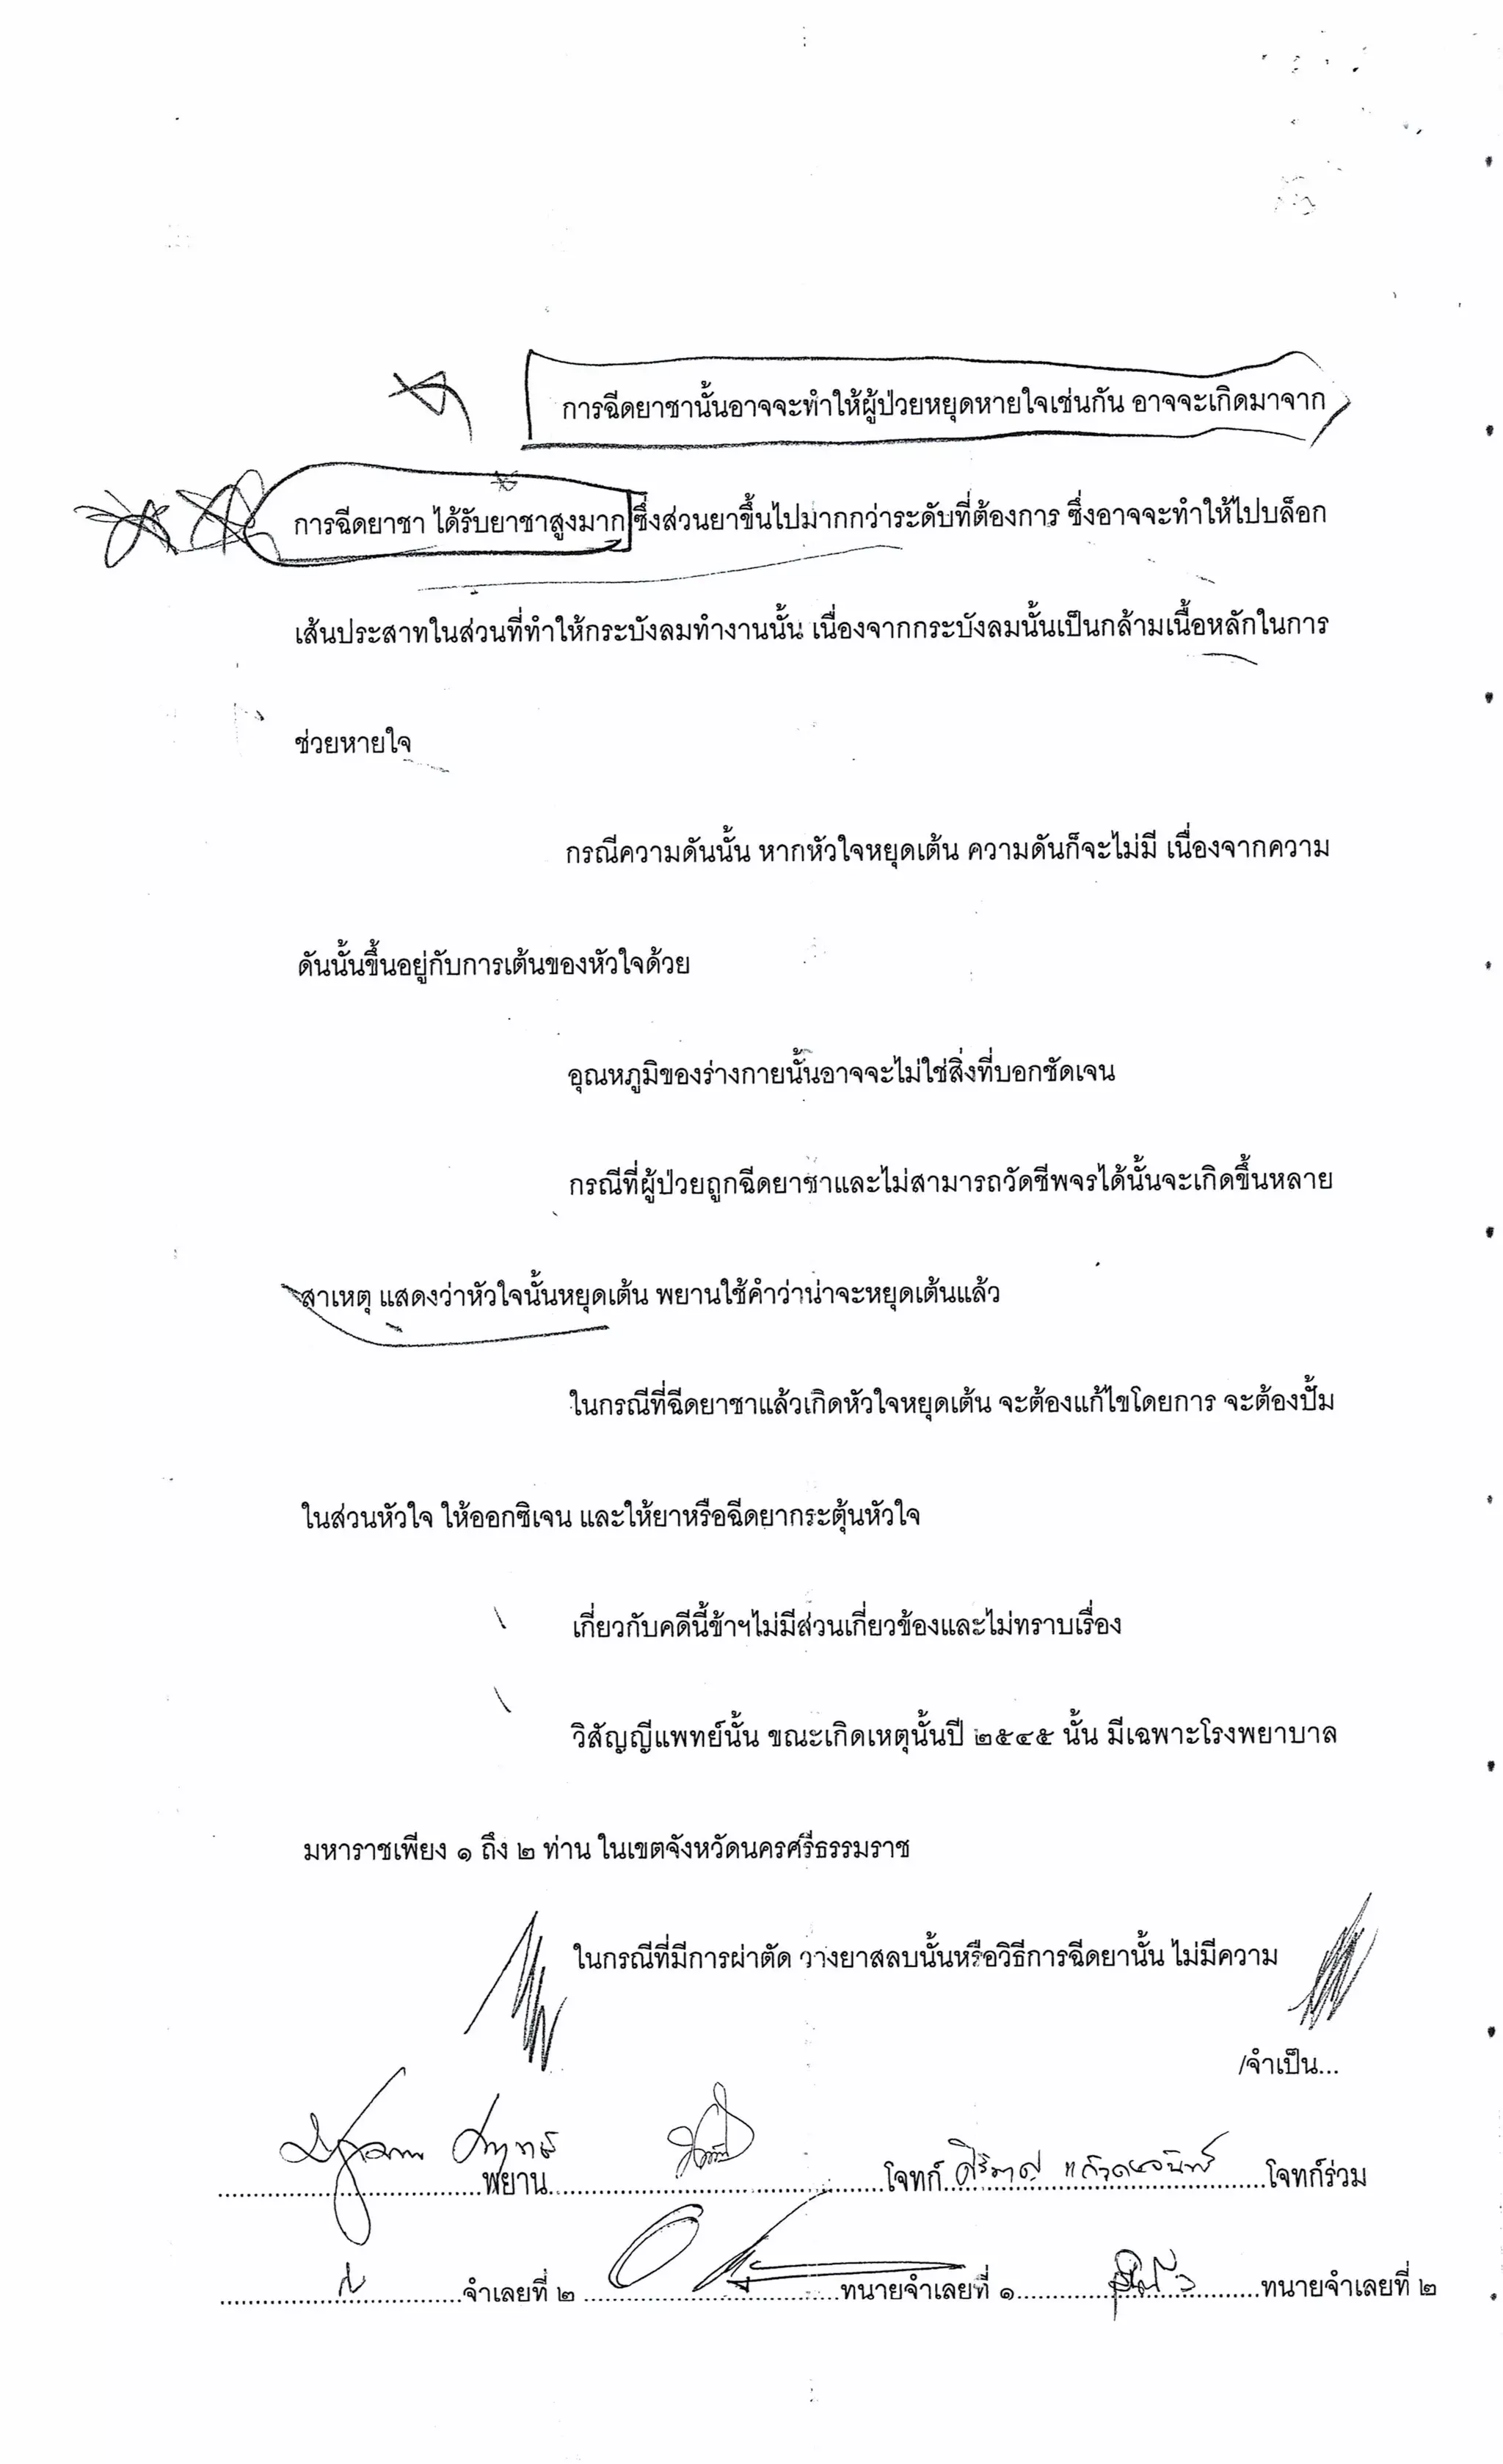 การฉีดยาชานั้นอาจจะทำให้ผู้ป่วยหยุดหายใจเช่นกัน อาจจะเกิดมาจาก
การฉีดยาชา ได้รับยาชาสูงมาก ซึ่งส่วนยาขึ้นไปมากกว่าระดับที่ต้องการ ซึ่งอาจจะทำให้ไปบล็อก
เส้นประสาทในส่วนที่ทำให้กระบังลมทำงานนั้น เนื่องจากกระบังลมนั้นเป็นกล้ามเนื้อหลักในการ
ช่วยหายใจ
กรณีความดันนั้น หากหัวใจหยุดเต้น ความดันก็จะไม่มี เนื่องจากความ
ดันนั้นขึ้นอยู่กับการเต้นของหัวใจด้วย
อุณหภูมิของร่างกายนั้นอาจจะไม่ใช่สิ่งที่บอกชัดเจน
กรณีที่ผู้ป่วยถูกฉีดยาชาและไม่สามารถวัดชีพจรได้นั้นจะเกิดขึ้นหลาย
สาเหตุ แสดงว่าหัวใจนั้นหยุดเต้น พยานใช้คำว่าน่าจะหยุดเต้นแล้ว
ในกรณีที่ฉีดยาชาแล้วเกิดหัวใจหยุดเต้น จะต้องแก้ไขโดยการ จะต้องปั้ม
ในส่วนหัวใจ ให้ออกซิเจน และให้ยาหรือฉีดยากระตุ้นหัวใจ
เกี่ยวกับคดีนี้ข้าฯไม่มีส่วนเกี่ยวข้องและไม่ทราบเรื่อง
วิสัญญีแพทย์นั้น ขณะเกิดเหตุนั้นปี ๒๕๔๕ นั้น มีเฉพาะโรงพยาบาล
มหาราชเพียง ๑ ถึง ๒ ท่าน ในเขตจังหวัดนครศรีธรรมราช
ในกรณีที่มีการผ่าตัด วางยาสลบนั้นหรือวิธีการฉีดยานั้น ไม่มีความ
/จำเป็น...
พยาน โจทก์ โจทก์ร่วม
จำเลยที่ ๒ ทนายจำเลยที่ ๑ ทนายจำเลยที่ ๒